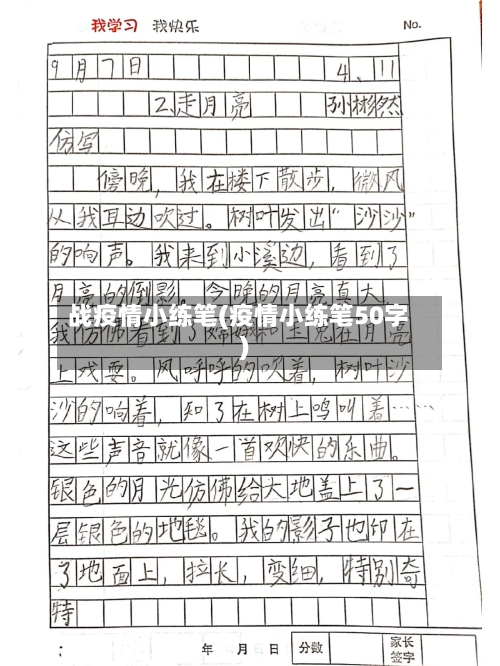 我学习 我快乐 No.
9月7日 4、11
2、走月亮 孙彬然
仿写
傍晚，我在楼下散步，微风
从我耳边吹过。树叶发出“沙沙”
的响声。我来到小溪边，看到了
月亮的倒影。今晚的月亮真大，
战疫情小练笔(疫情小练笔50字
)
我仿佛看到了嫦娥和玉兔在月
上戏耍。风呼呼的吹着，树叶沙
沙的响着，知了在树上鸣叫着……
这些声音就像一首欢快的乐曲。
银色的月光仿佛给大地盖上了一
层银色的地毯。我的影子也印在
了地面上，拉长，变细，特别奇
特
： 年 月 日 分数 家长
签字